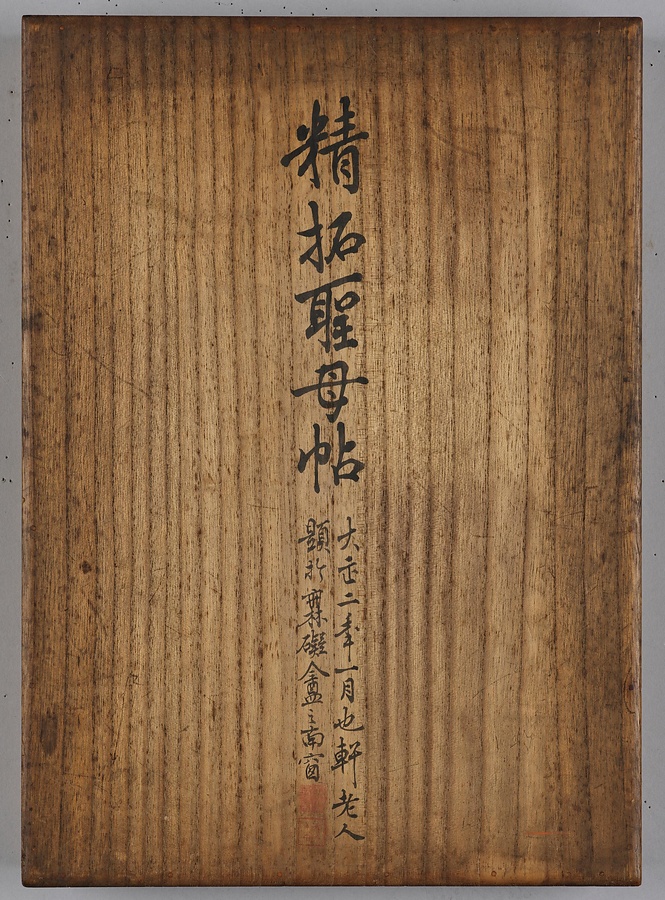 精拓聖母帖
大正二年一月也軒老人
題於無礙盦之南窗